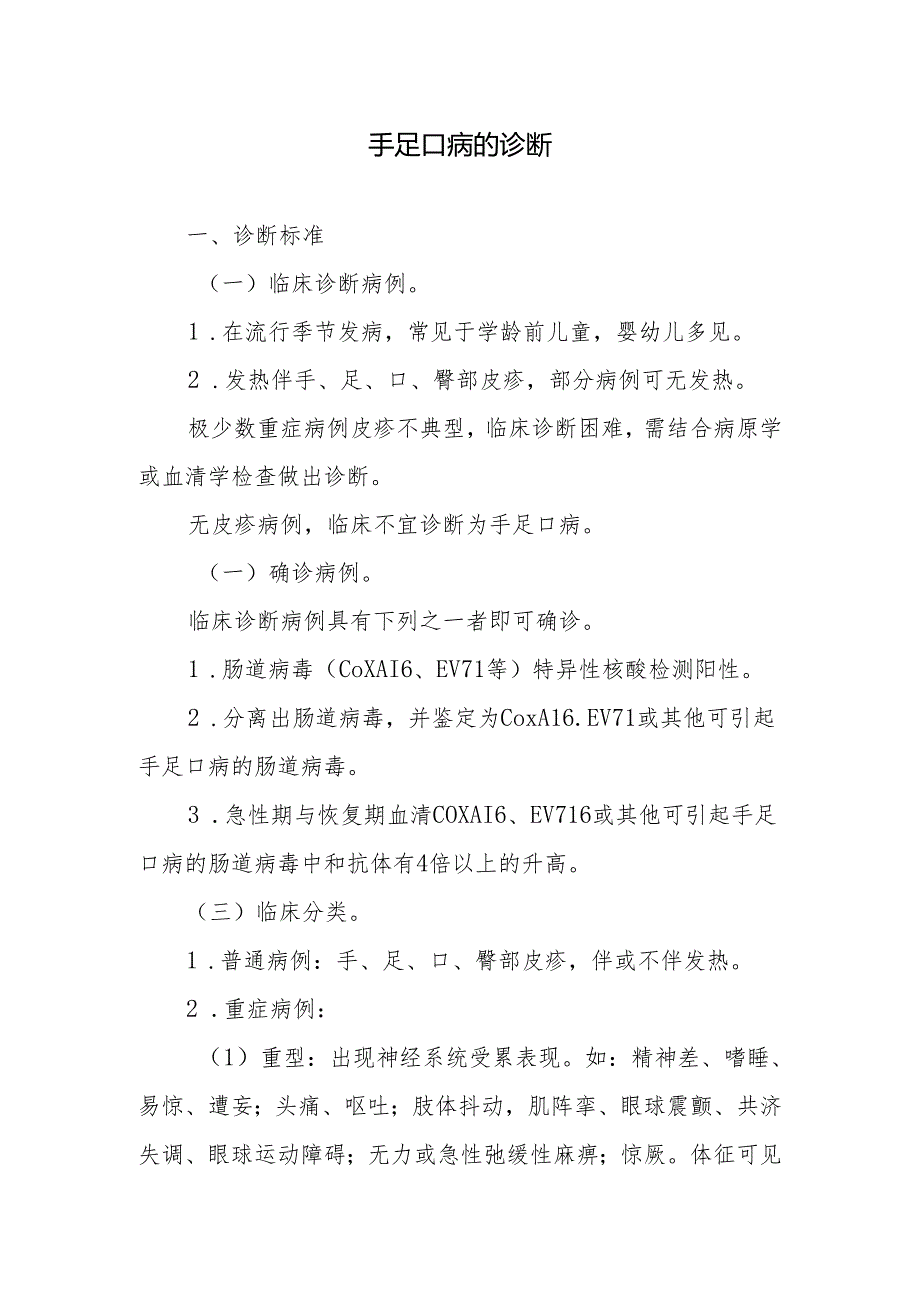 手足口病的诊断
一、诊断标准
（一）临床诊断病例。
1 .在流行季节发病，常见于学龄前儿童，婴幼儿多见。
2 .发热伴手、足、口、臀部皮疹，部分病例可无发热。
极少数重症病例皮疹不典型，临床诊断困难，需结合病原学
或血清学检查做出诊断。
无皮疹病例，临床不宜诊断为手足口病。
（一）确诊病例。
临床诊断病例具有下列之一者即可确诊。
1 .肠道病毒（CoXAI6、EV71等）特异性核酸检测阳性。
2 .分离出肠道病毒，并鉴定为CoxA16.EV71或其他可引起
手足口病的肠道病毒。
3 .急性期与恢复期血清COXAI6、EV716或其他可引起手足
口病的肠道病毒中和抗体有4倍以上的升高。
（三）临床分类。
1 .普通病例：手、足、口、臀部皮疹，伴或不伴发热。
2 .重症病例：
（1）重型：出现神经系统受累表现。如：精神差、嗜睡、
易惊、遭妄；头痛、呕吐；肢体抖动，肌阵挛、眼球震颤、共济
失调、眼球运动障碍；无力或急性弛缓性麻痹；惊厥。体征可见